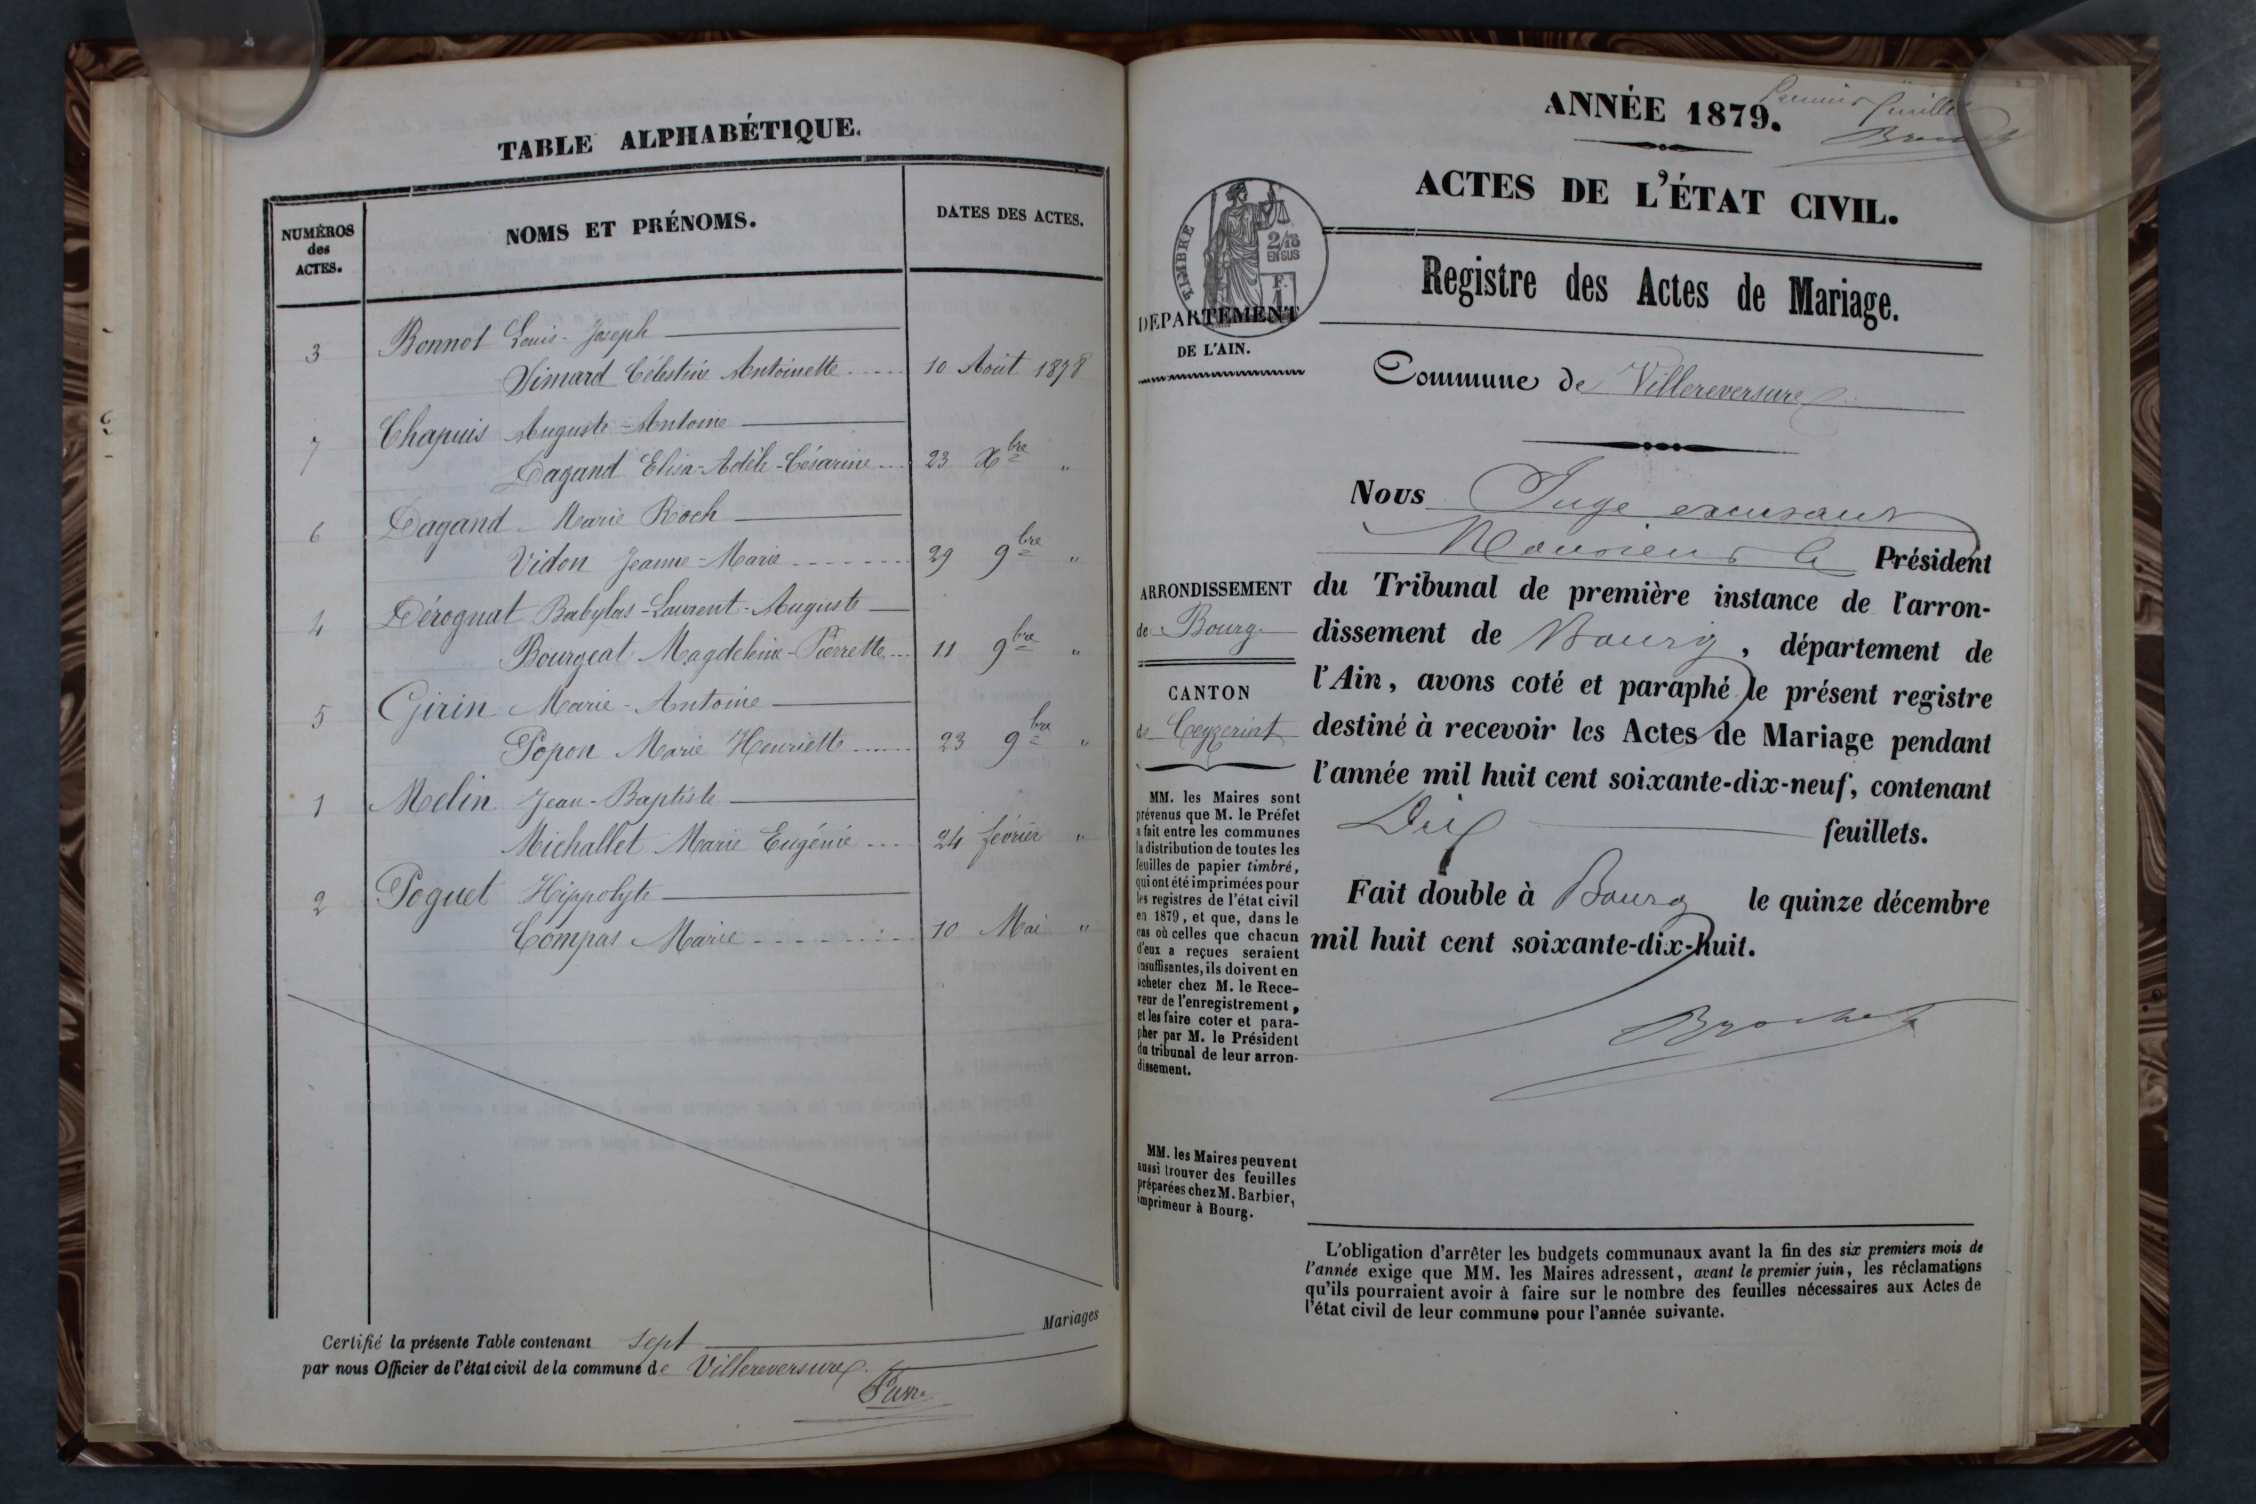 TABLE ALPHABÉTIQUE.
NUMÉROS
des
ACTES.
NOMS ET PRÉNOMS.
DATES DES ACTES.
3 Bonnot Louis-Joseph
Simard Célestine Antoinette 10 Août 1878
7 Chapuis Auguste-Antoine
Dagand Elisa-Adèle-Césarine 23 Xbre "
6 Dagand Marie Roch
Vidon Jeanne-Marie 29 9bre "
4 Dérognat Babylas-Laurent-Auguste
Bourgeat Magdeleine-Pierrette 11 9bre "
5 Girin Marie-Antoine
Popon Marie Henriette 23 9bre "
1 Melin Jean-Baptiste
Michallet Marie Eugénie 24 février "
2 Poguet Hippolyte
Compas Marie 10 Mai "
Certifié la présente Table contenant sept Mariages
par nous Officier de l'état civil de la commune de Villereversure.
ANNÉE 1879.
Premier feuillet
Brochet
ACTES DE L'ÉTAT CIVIL.
TIMBRE
2/10
EN SUS
F.
1
DÉPARTEMENT
DE L'AIN.
Registre des Actes de Mariage.
Commune de Villereversure
Nous Juge excusant
Monsieur le Président
du Tribunal de première instance de l'arron-
dissement de Bourg, département de
l'Ain, avons coté et paraphé le présent registre
destiné à recevoir les Actes de Mariage pendant
l'année mil huit cent soixante-dix-neuf, contenant
Dix feuillets.
Fait double à Bourg le quinze décembre
mil huit cent soixante-dix-huit.
Brochet
ARRONDISSEMENT
de Bourg
CANTON
de Ceyzeriat
MM. les Maires sont
prévenus que M. le Préfet
a fait entre les communes
la distribution de toutes les
feuilles de papier timbré,
qui ont été imprimées pour
les registres de l'état civil
en 1879, et que, dans le
cas où celles que chacun
d'eux a reçues seraient
insuffisantes, ils doivent en
acheter chez M. le Rece-
veur de l'enregistrement,
et les faire coter et para-
pher par M. le Président
du tribunal de leur arron-
dissement.
MM. les Maires peuvent
aussi trouver des feuilles
préparées chez M. Barbier,
imprimeur à Bourg.
L'obligation d'arrêter les budgets communaux avant la fin des six premiers mois de
l'année exige que MM. les Maires adressent, avant le premier juin, les réclamations
qu'ils pourraient avoir à faire sur le nombre des feuilles nécessaires aux Actes de
l'état civil de leur commune pour l'année suivante.